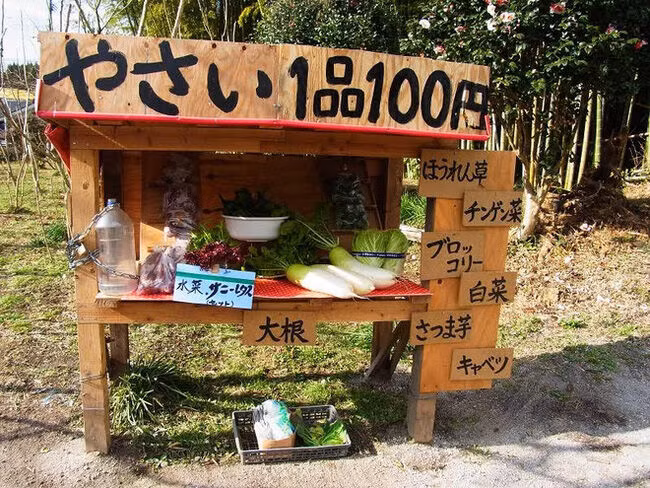 やさい1品100円
ほうれん草
チンゲン菜
ブロッ
コリー
白菜
さつま芋
キャベツ
水菜、サニーレタス
大根